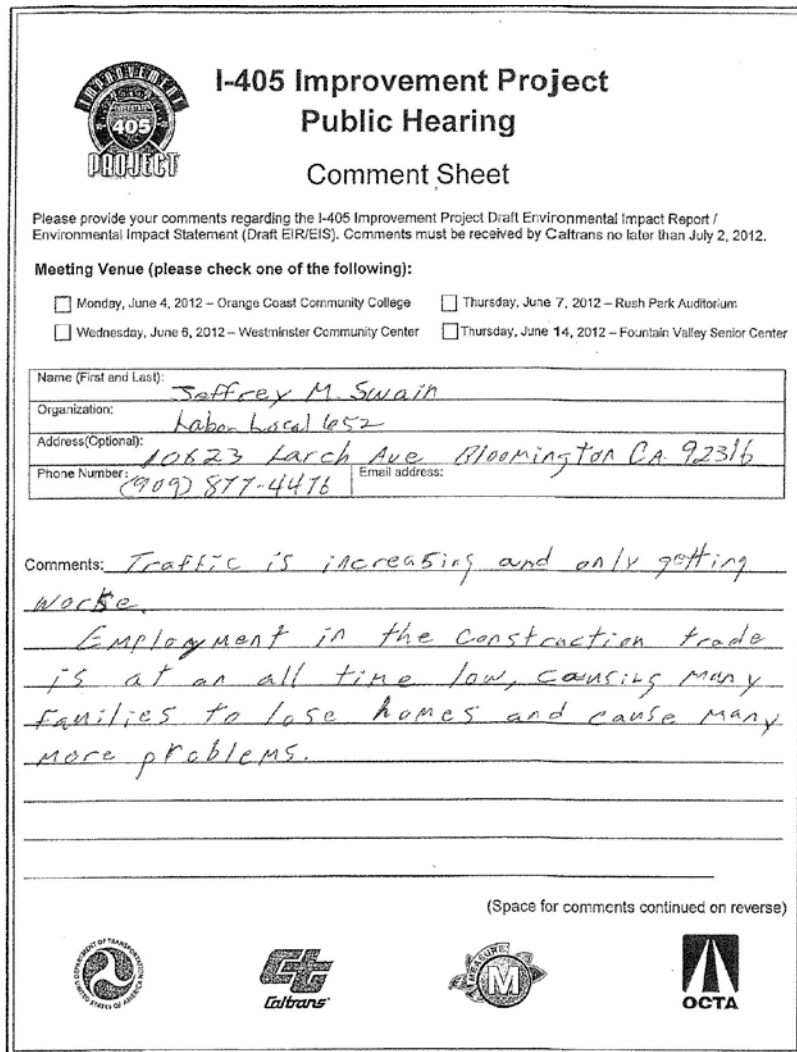 IMPROVEMENT
INTERSTATE
405
PROJECT
I-405 Improvement Project
Public Hearing
Comment Sheet
Please provide your comments regarding the I-405 Improvement Project Draft Environmental Impact Report /
Environmental Impact Statement (Draft EIR/EIS). Comments must be received by Caltrans no later than July 2, 2012.
Meeting Venue (please check one of the following):
Monday, June 4, 2012 – Orange Coast Community College
Thursday, June 7, 2012 – Rush Park Auditorium
Wednesday, June 6, 2012 – Westminster Community Center
Thursday, June 14, 2012 – Fountain Valley Senior Center
Name (First and Last): Jeffrey M. Swain
Organization: Labor Local 652
Address(Optional): 10823 Larch Ave Bloomington CA. 92316
Phone Number: (909) 877-4476 Email address:
Comments: Traffic is increasing and only getting
worse.
Employment in the construction trade
is at an all time low, causing many
families to lose homes and cause many
more problems.
(Space for comments continued on reverse)
DEPARTMENT OF TRANSPORTATION
UNITED STATES OF AMERICA
Caltrans
MEASURE
M
OCTA